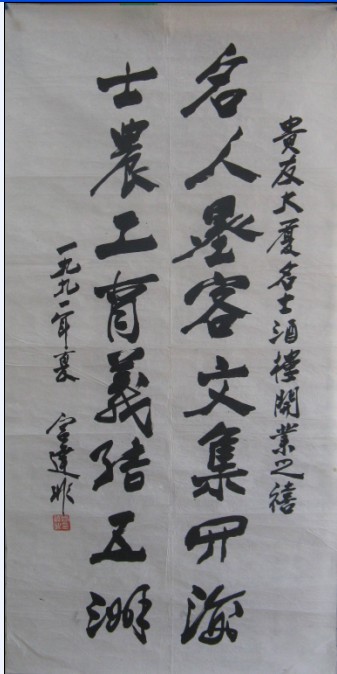 貴友大廈名士酒樓開業之禧
名人墨客文集四海
士農工商義結五湖
一九九一年夏 宫達非